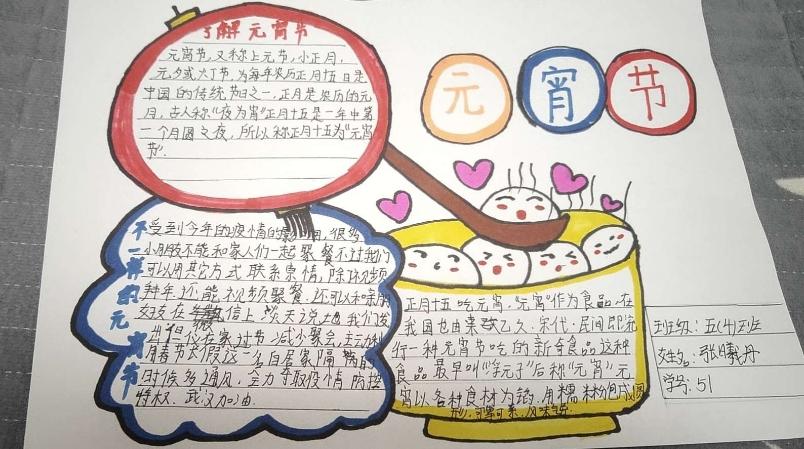 了解元宵节
元宵节,又称上元节,小正月,
元夕或火丁节,为每年农历正月十五日是
中国的传统节日之一,正月是农历的元
月,古人称“夜为宵”正月十五是一年中第
一个月圆之夜,所以称正月十五为“元宵
节”.
元宵节
不一样的元宵节
受到今年的疫情的影响,很多
小朋友不能和家人们一起聚餐不过我们
可以用其它方式联系亲情,除了视频
拜年还能视频聚餐,还可以和
在微信上谈天说地我们
在家过节减少聚会,
春节大假这一
时候多通风,全力争取疫情防控
武汉加油
正月十五吃元宵,“元宵”作为食品,在
我国也由来已久.宋代.民间即流
行一种元宵节吃的新奇食品这种
食品最早叫“浮元子”后称“元宵”元
宵以各种食材为馅,用糯米粉包成圆
形,可荤可素,风味
班级:五(4)班
姓名:张曦丹
学号:51